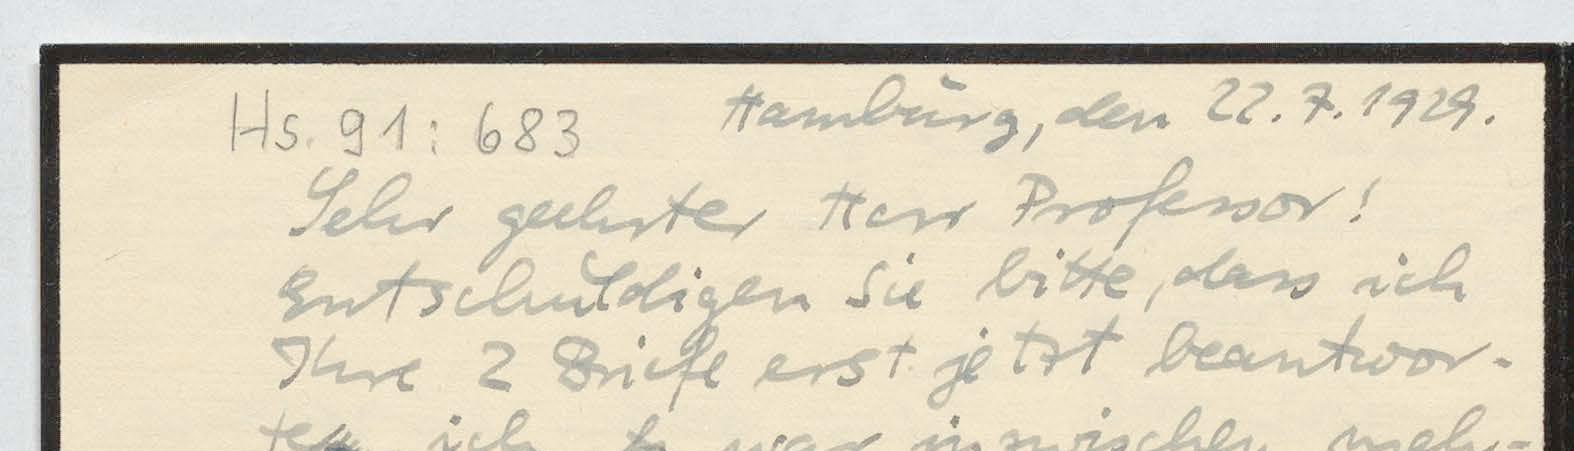 Hs. 91: 683
Hamburg, den 22.7.1929.
Sehr geehrter Herr Professor!
Entschuldigen Sie bitte, dass ich
Ihre 2 Briefe erst jetzt beantwor-
ich war inzwischen meh-